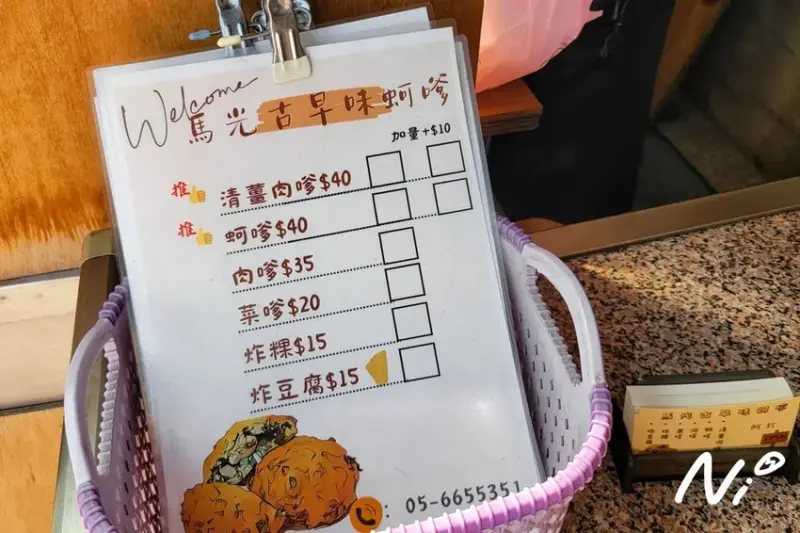 Welcome
馬光古早味蚵嗲
加量+$10
推 清薑肉嗲$40
推 蚵嗲$40
肉嗲$35
菜嗲$20
炸粿$15
炸豆腐$15
: 05-6655351
Ni